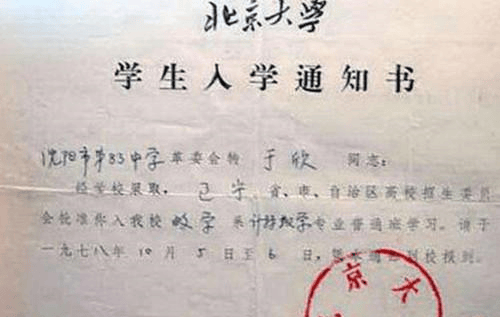 北京大学
学生入学通知书
沈阳市第83中学革委会转 于欣 同志:
经学校录取，辽宁省、市、自治区高校招生委员
会批准你入我校数学系计算数学专业普通班学习。请于
一九七八年10月5日至6日，凭本通知到校报到。
京大